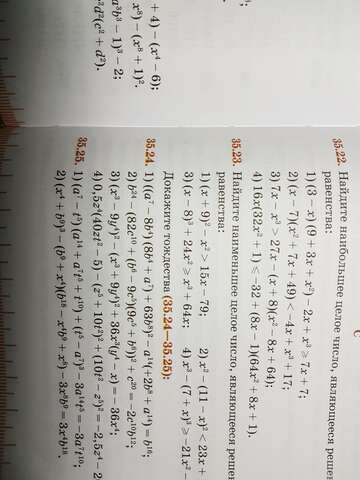 + 4) − (x⁴ − 6);
a³b³ − 1)³ − 2;
x⁸) − (x⁸ + 1)².
d²(c² + d²).
С
35.22. Найдите наибольшее целое число, являющееся решен
равенства:
1) (3 − x)(9 + 3x + x²) − 2x + x³ ⩾ 7x + 7;
2) (x − 7)(x² + 7x + 49) < −4x + x³ + 17;
3) 7x − x³ > 27x − (x + 8)(x² − 8x + 64);
4) 16x(32x² + 1) ⩽ −32 + (8x − 1)(64x² + 8x + 1).
35.23. Найдите наименьшее целое число, являющееся решен
равенства:
1) (x + 9)² − x² > 15x − 79; 2) x² − (11 − x)² < 23x +
3) (x − 8)³ + 24x² ⩾ x³ + 64x; 4) x³ − (7 + x)³ ⩾ −21x² −
Докажите тождества (35.24—35.25):
35.24. 1) ((a⁷ − 8b⁸)(8b⁸ + a⁷) + 63b¹⁶)² − a¹⁴(−2b¹⁶ + a¹⁴) = b³²;
2) b²⁴ − (82c¹⁰ + (b⁶ − 9c⁵)(9c⁵ + b⁶))² + c²⁰ = −2c¹⁰b¹²;
3) (x³ − 9y⁴)² − (x³ + 9y⁴)² + 36x³(y⁴ − x) = −36x⁴;
4) 0,5z⁴(40zt² − 5) − (z⁵ + 10t²)² + (10t² − z⁵)² = −2,5z⁴ − 2
35.25. 1) (a⁷ − t⁵)(a¹⁴ + a⁷t⁵ + t¹⁰) + (t⁵ − a⁷)³ − 3a¹⁴t⁵ = −3a⁷t¹⁰;
2) (x⁴ + b⁹)³ − (b⁹ + x⁴)(b¹⁸ − x⁴b⁹ + x⁸) − 3x⁸b⁹ = 3x⁴b¹⁸.